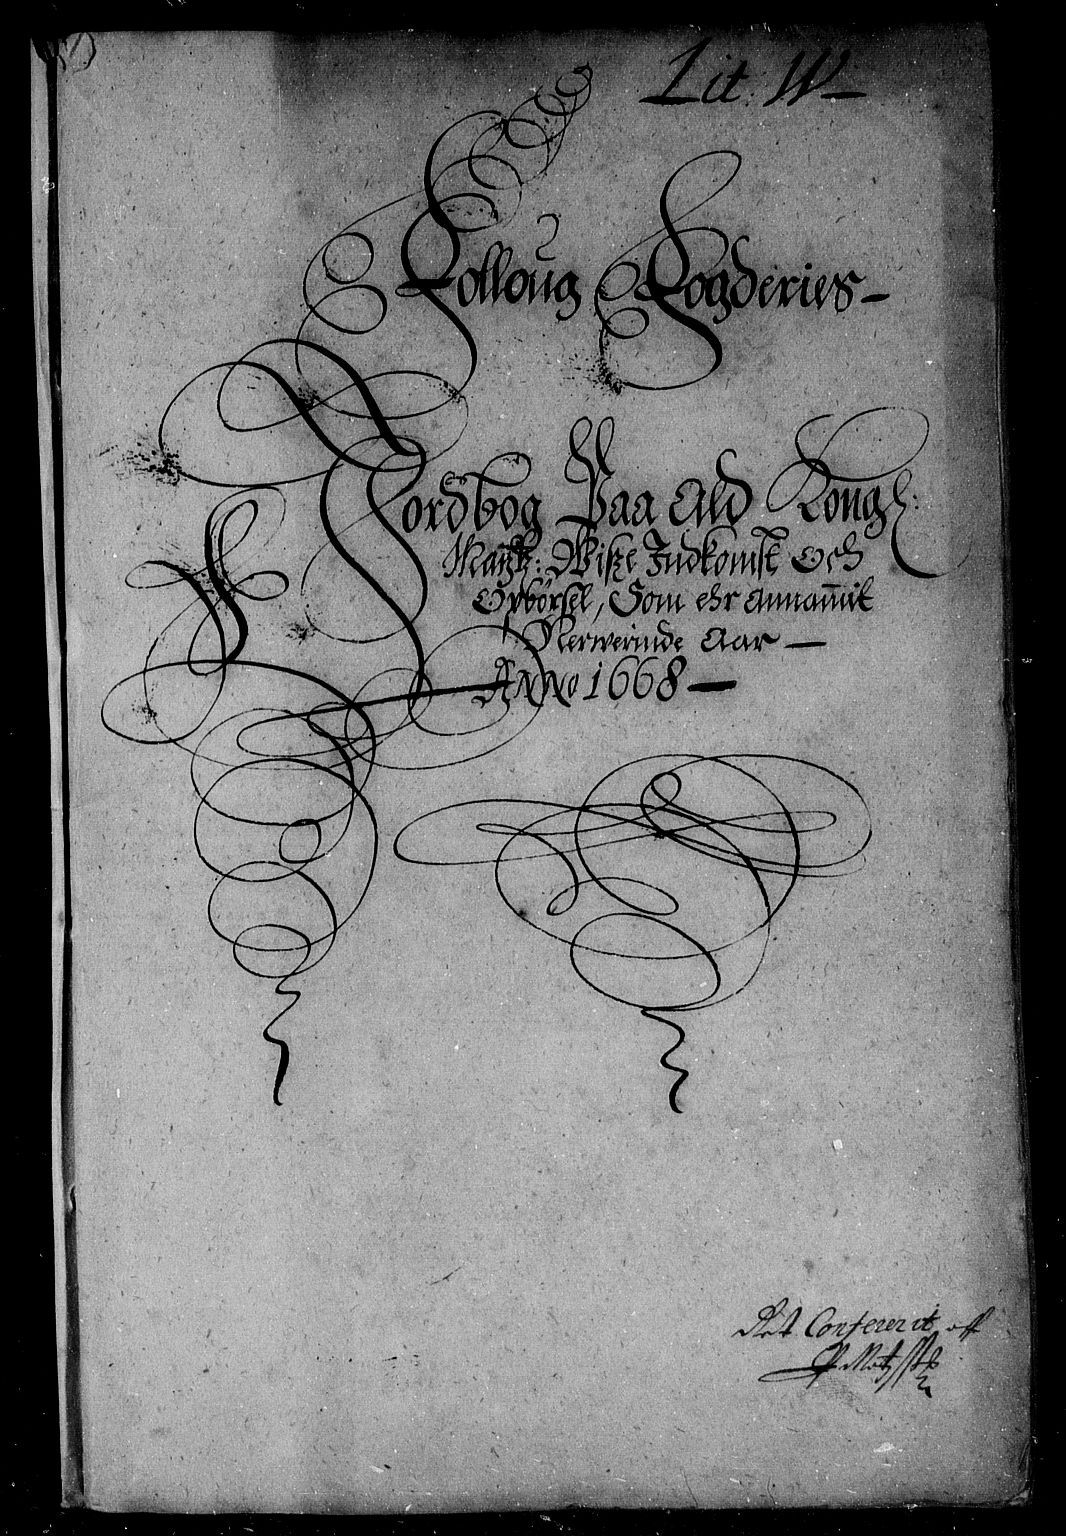 Lit: W
Folloug Fogderies
Jordbog Paa Ald Kongl:
Maytz: Wisze Indkomst Och
Opbörsel, Som ehr Annammit
Nerwerinde Aar
Anno 1668
Ret Confererit aff